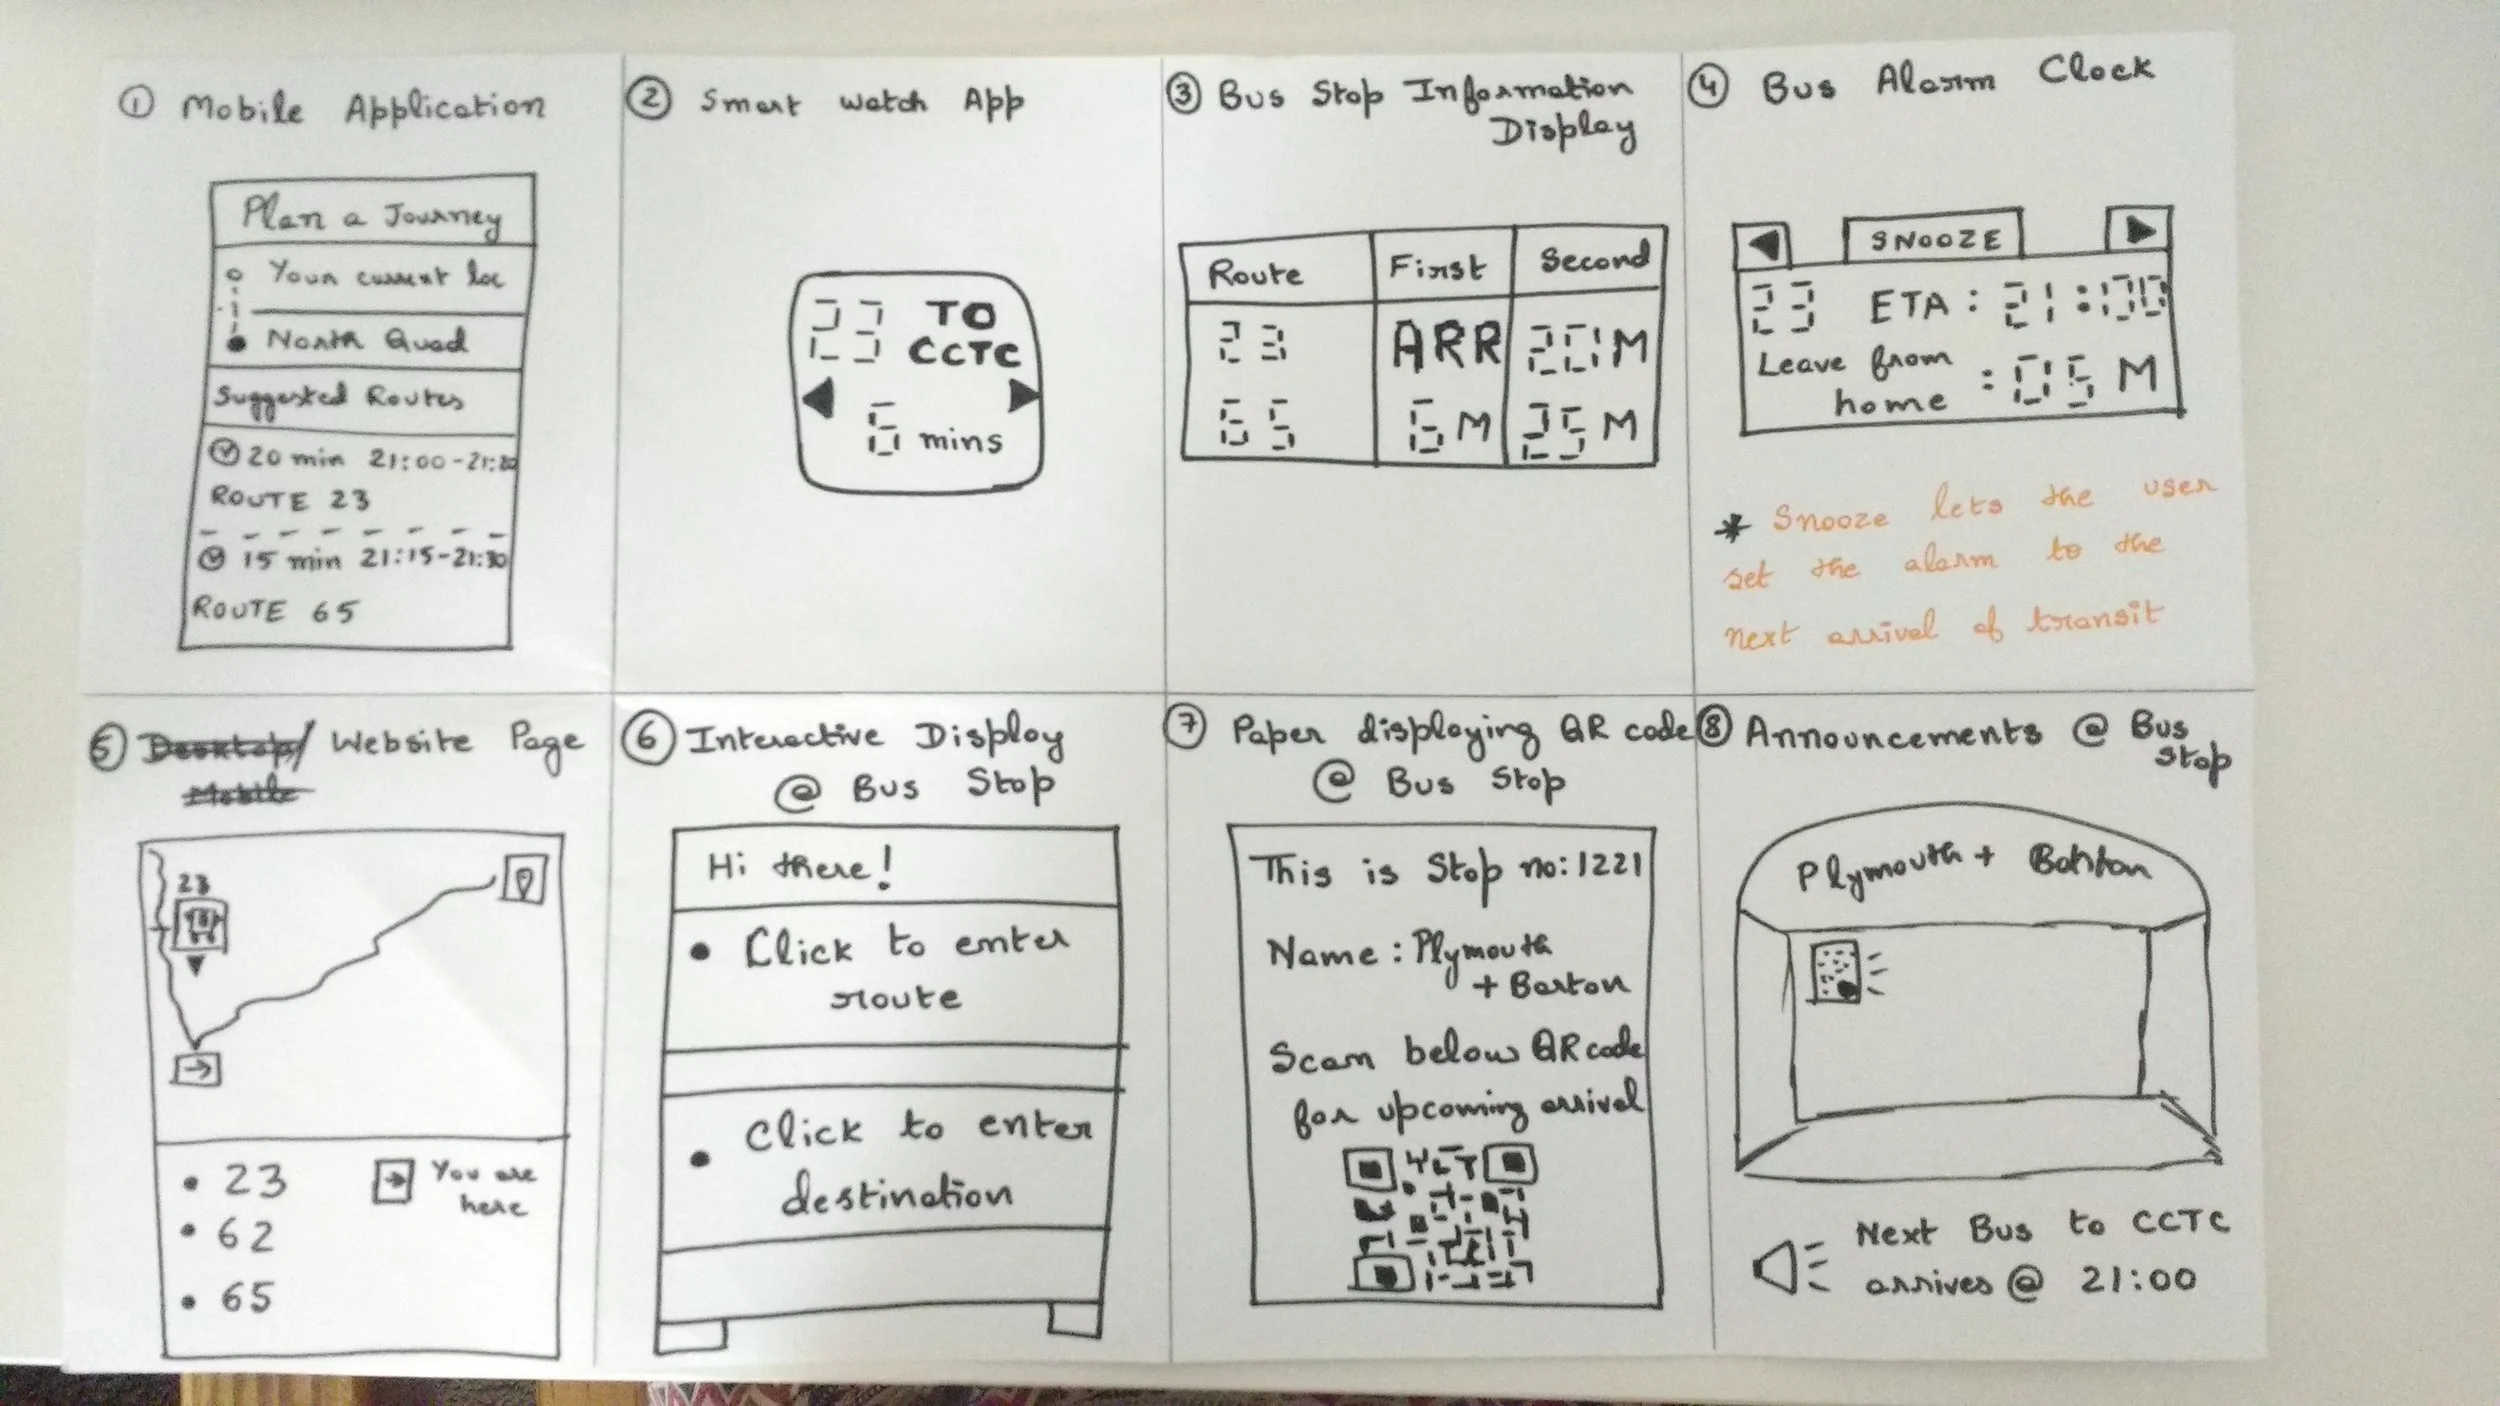 ① Mobile Application
Plan a Journey
Your current loc
North Quad
Suggested Routes
20 min 21:00-21:20
ROUTE 23
15 min 21:15-21:30
ROUTE 65
② Smart Watch App
23 TO
CCTC
6 mins
③ Bus Stop Information
Display
Route First Second
23 ARR 20M
65 6M 25M
④ Bus Alarm Clock
SNOOZE
23 ETA : 21:00
Leave from
home : 05 M
* Snooze lets the user
set the alarm to the
next arrival of transit
⑤ Desktop/ Website Page
Mobile
23
• 23
• 62
• 65
You are
here
⑥ Interactive Display
@ Bus Stop
Hi there!
• Click to enter
route
• Click to enter
destination
⑦ Paper displaying QR code
@ Bus Stop
This is Stop no:1221
Name : Plymouth
+ Barton
Scan below QR code
for upcoming arrival
⑧ Announcements @ Bus
Stop
Plymouth + Barton
Next Bus to CCTC
arrives @ 21:00